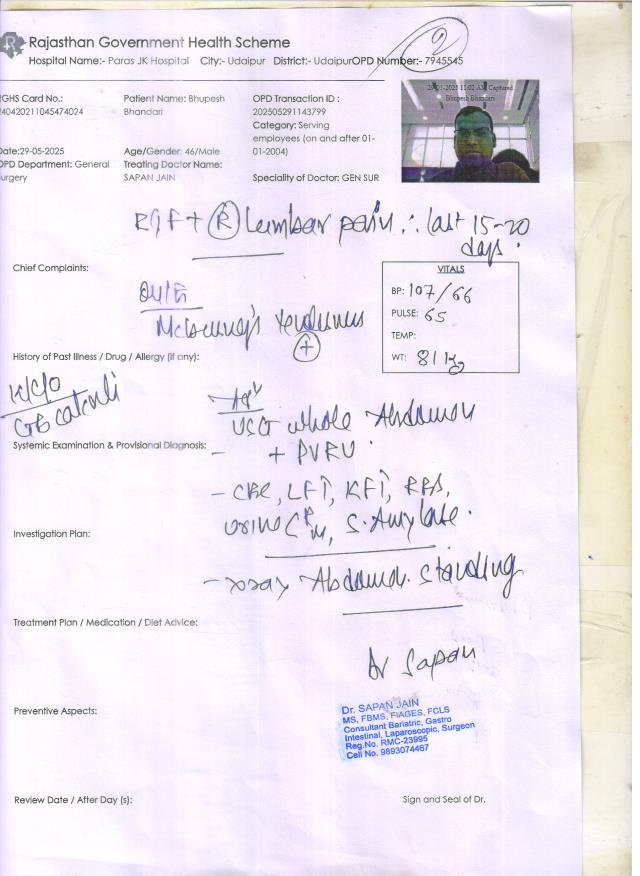 Rajasthan Government Health Scheme
Hospital Name:- Paras JK Hospital City:- Udaipur District:- UdaipurOPD Number:- 7945545
2
RGHS Card No.:
240420211045474024
Patient Name: Bhupesh
Bhandari
OPD Transaction ID :
202505291143799
Category: Serving
employees (on and after 01-
01-2004)
29-05-2025 11:02 AM Captured
Bhupesh Bhandari
Date:29-05-2025
OPD Department: General
Surgery
Age/Gender: 46/Male
Treating Doctor Name:
SAPAN JAIN
Speciality of Doctor: GEN SUR
RIF + R Lumbar pain ∴ last 15-20
days.
Chief Complaints:
O/E
McBurney's tenderness
+
VITALS
BP: 107/66
PULSE: 65
TEMP:
WT: 81 kg
History of Past Illness / Drug / Allergy (if any):
K/C/O
GB calculi
Adv
USG whole Abdomen
- + PVRU
Systemic Examination & Provisional Diagnosis:
- CBC, LFT, KFT, RBS,
urine C/M, S. Amylase.
Investigation Plan:
- xray Abdomen standing
Treatment Plan / Medication / Diet Advice:
Dr Sapan
Preventive Aspects:
Dr. SAPAN JAIN
MS, FBMS, FIAGES, FCLS
Consultant Bariatric, Gastro
Intestinal, Laparoscopic, Surgeon
Reg.No. RMC-23995
Cell No. 9893074467
Review Date / After Day (s):
Sign and Seal of Dr.